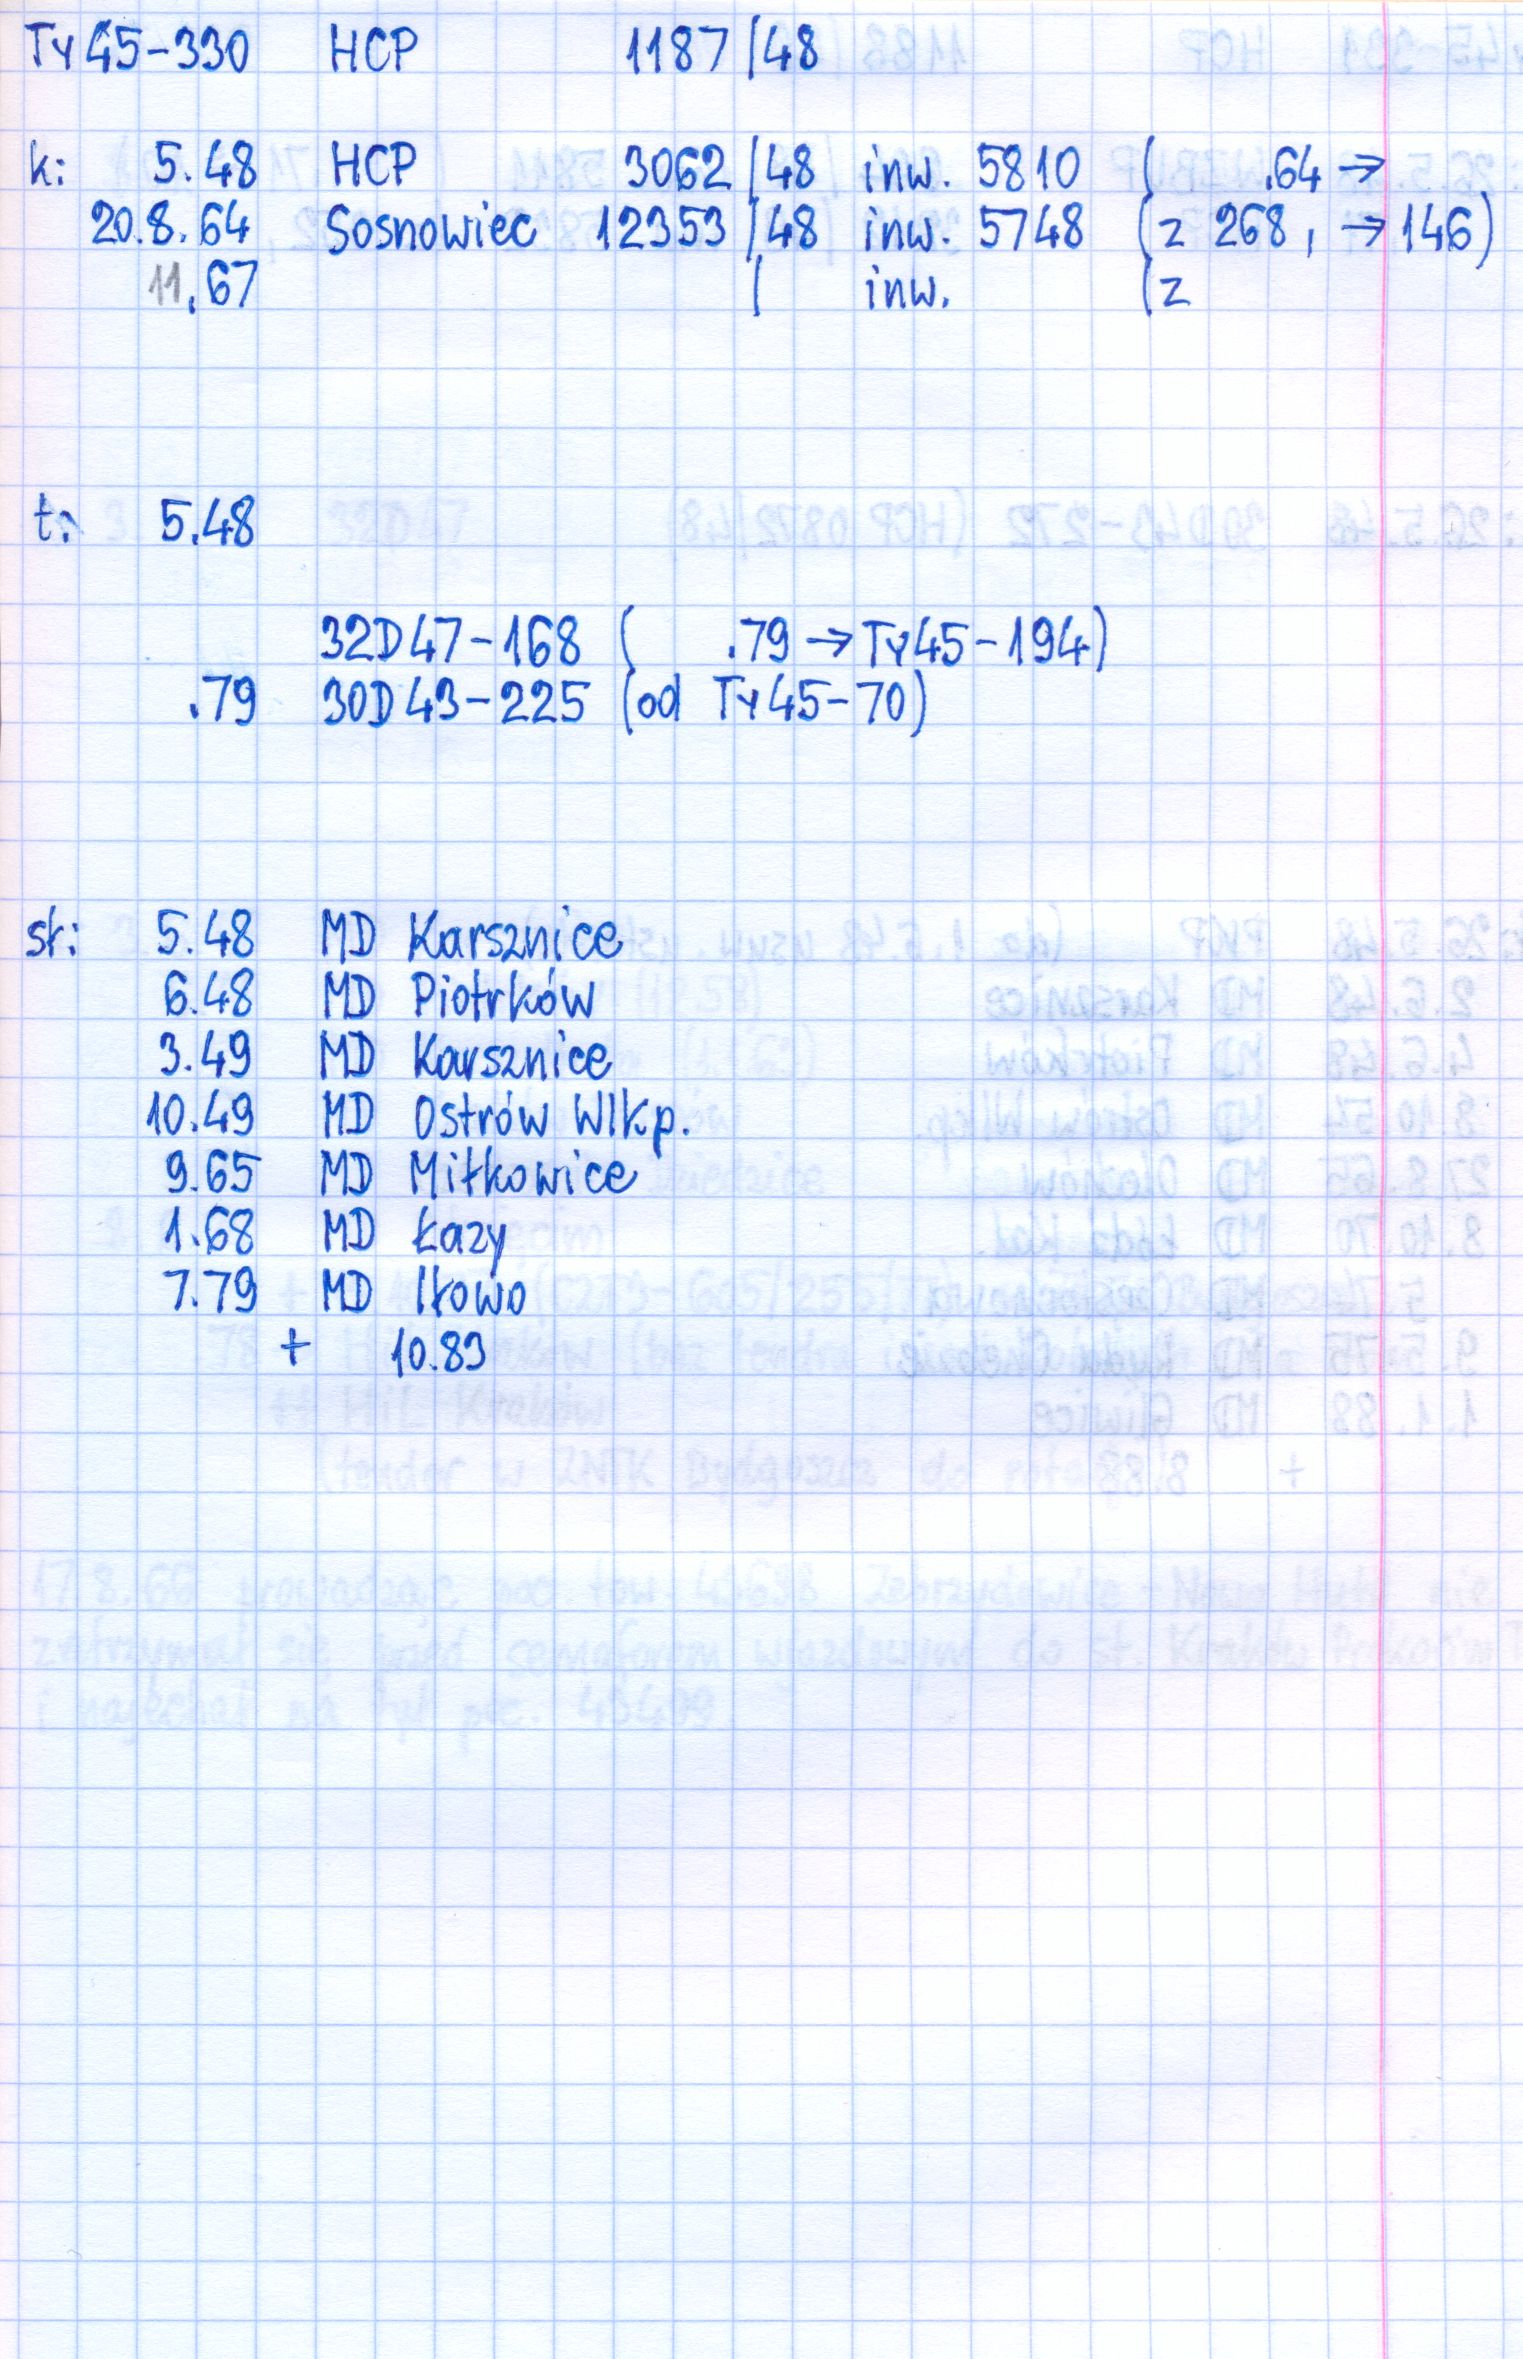 Ty45-330 HCP 1187/48
k: 5.48 HCP 3062/48 inw. 5810 ( .64 →
20.8.64 Sosnowiec 12353/48 inw. 5748 (z 268, → 146)
11.67 / inw. (z
t: 5.48
32D47-168 ( .79 → Ty45-194)
.79 30D43-225 (od Ty45-70)
sł: 5.48 MD Karsznice
6.48 MD Piotrków
3.49 MD Karsznice
10.49 MD Ostrów Wlkp.
9.65 MD Miłkowice
1.68 MD Łazy
7.79 MD Iłowo
+ 10.83